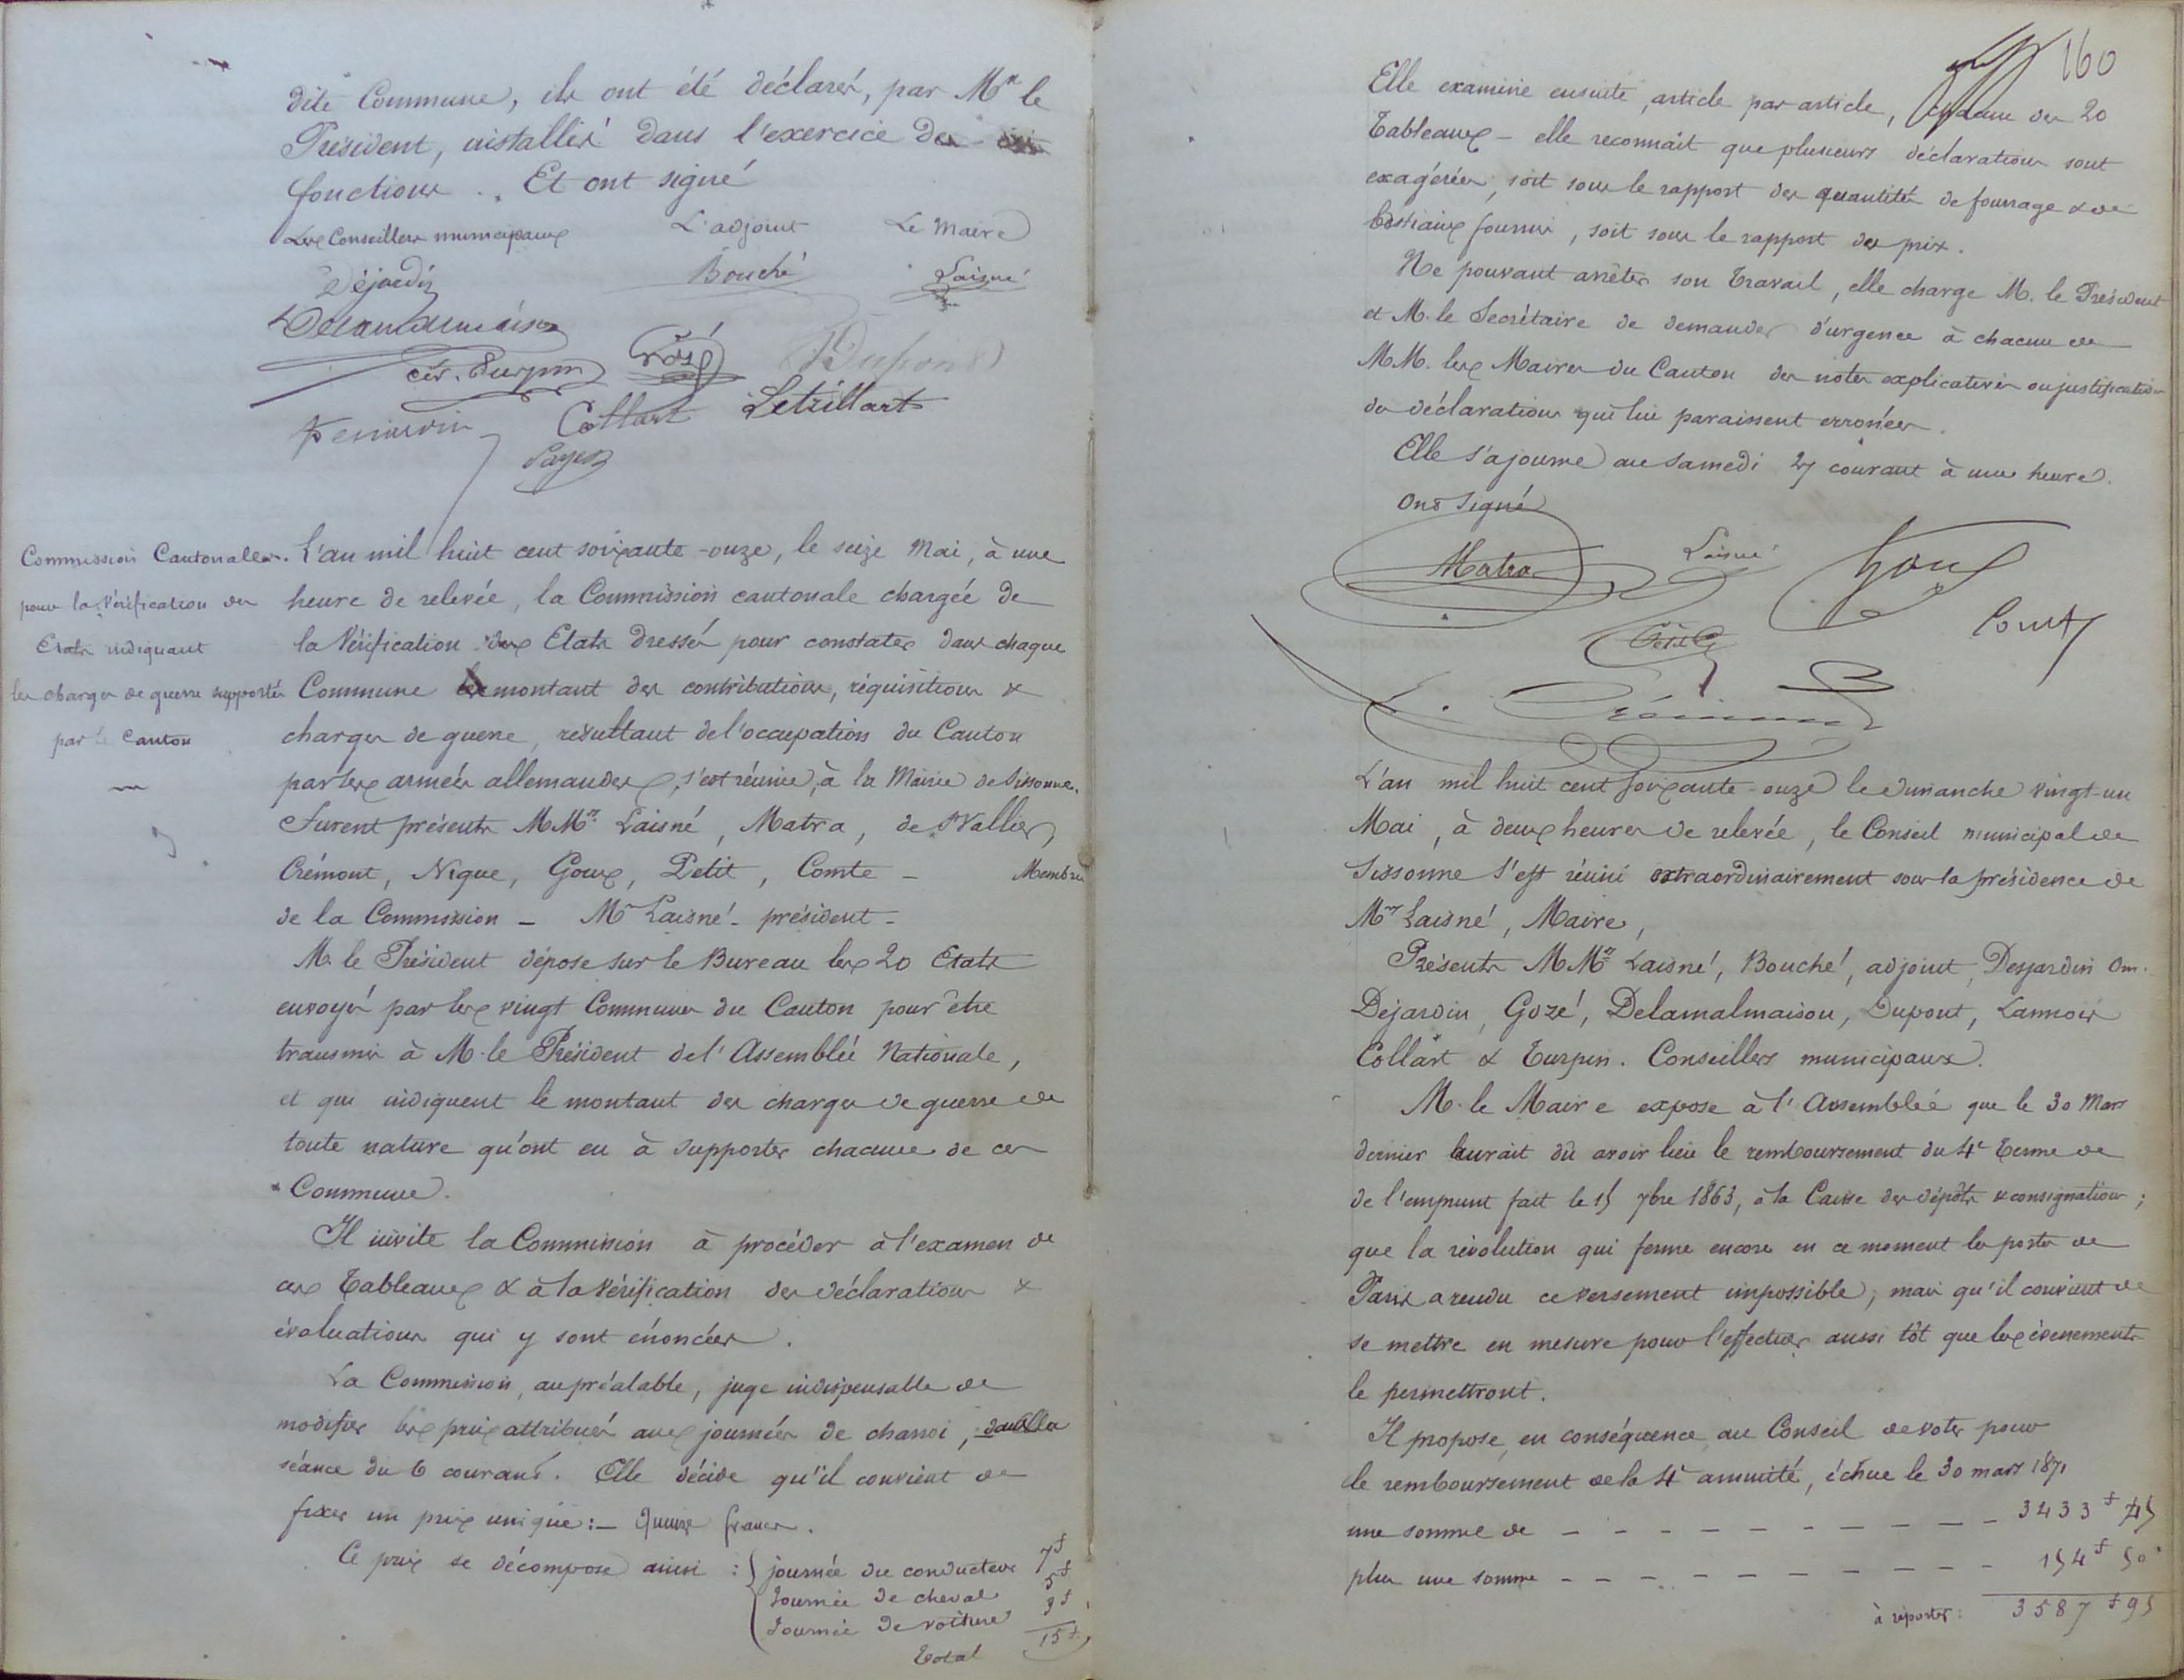 dite Commune, ils ont été déclarés, par Mr le
Président, installés dans l'exercice des
fonctions. Et ont signé
Les Conseillers municipaux L'adjoint Le Maire
Déjardin Bouché Laisné
Delamalmaison
Cér. Turpin Gozé Dupont
Collart Letrillart
Commission Cantonale
pour la vérification des
Etats indiquant
les charges de guerre supportés
par le Canton
L'an mil huit cent soixante-onze, le seize Mai, à une
heure de relevée, la Commission cantonale chargée de
la Vérification des Etats dressés pour constater dans chaque
Commune le montant des contributions, réquisitions &
charges de guerre, résultant de l'occupation du Canton
par les armées allemandes, s'est réunie, à la Mairie de Sissonne.
Furent présents M Mrs Laisné, Matra, de St Vallier,
Crémont, Nique, Goux, Petit, Comte - Membres
de la Commission - Mr Laisné - président -
M. le Président dépose sur le Bureau les 20 Etats
envoyés par les vingt Communes du Canton pour être
transmis à M. le Président de l'Assemblée Nationale,
et qui indiquent le montant des charges de guerre de
toute nature qu'ont eu à supporter chacune de ces
Commune.
Il invite la Commission à procéder à l'examen de
ces Tableaux & à la vérification des déclarations &
évaluations qui y sont énoncées.
La Commission, au préalable, juge indispensable de
modifier les prix attribués aux journées de charroi, dans la
séance du 6 courant. Elle décide qu'il convient de
fixer un prix unique :- Quinze francs.
Ce prix se décompose ainsi : journée du conducteur 7f
Journée de cheval 5f
Journée de voiture 3f
Total 15f
160
Elle examine ensuite, article par article, chacun des 20
Tableaux - elle reconnaît que plusieurs déclarations sont
exagérées, soit sous le rapport des quantités de fourrage & de
bestiaux fournis, soit sous le rapport des prix.
Ne pouvant arrêter son travail, elle charge M. le Président
et M. le Secrétaire de demander d'urgence à chacun de
M M. les Maires du Canton des notes explicatives ou justificatives
des déclarations qui lui paraissent erronées.
Elle s'ajourne au samedi 27 courant à une heure.
Ont signé
Matra Laisné Goux
Petit Comte
Crémont
L'an mil huit cent soixante-onze le dimanche vingt-un
Mai, à deux heures de relevée, le Conseil municipal de
Sissonne s'est réuni extraordinairement sous la présidence de
Mr Laisné, Maire,
Présents M Mrs Laisné, Bouché, adjoint, Desjardin Om.
Déjardin, Gozé, Delamalmaison, Dupont, Lannois
Collart & Turpin. Conseillers municipaux.
M. le Maire expose à l'Assemblée que le 30 Mars
dernier aurait dû avoir lieu le remboursement du 4e terme de
de l'emprunt fait le 15 7bre 1863, à la Caisse des dépôts & consignations ;
que la révolution qui ferme encore en ce moment les portes de
Paris a rendu ce versement impossible ; mais qu'il convient de
se mettre en mesure pour l'effectuer aussi tôt que les évenements
le permettront.
Il propose, en conséquence, au Conseil de voter pour
le remboursement de la 4e annuité, échue le 30 mars 1871
une somme de - - - - - - - - - - - 3433f 45
plus une somme - - - - - - - - - - 154f 50
à reporter : 3587f 95